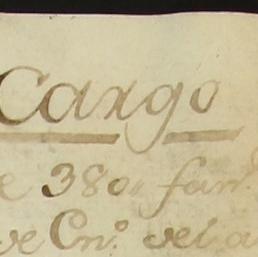 Cargo
e 380,, fan.
ve Cno. vei a